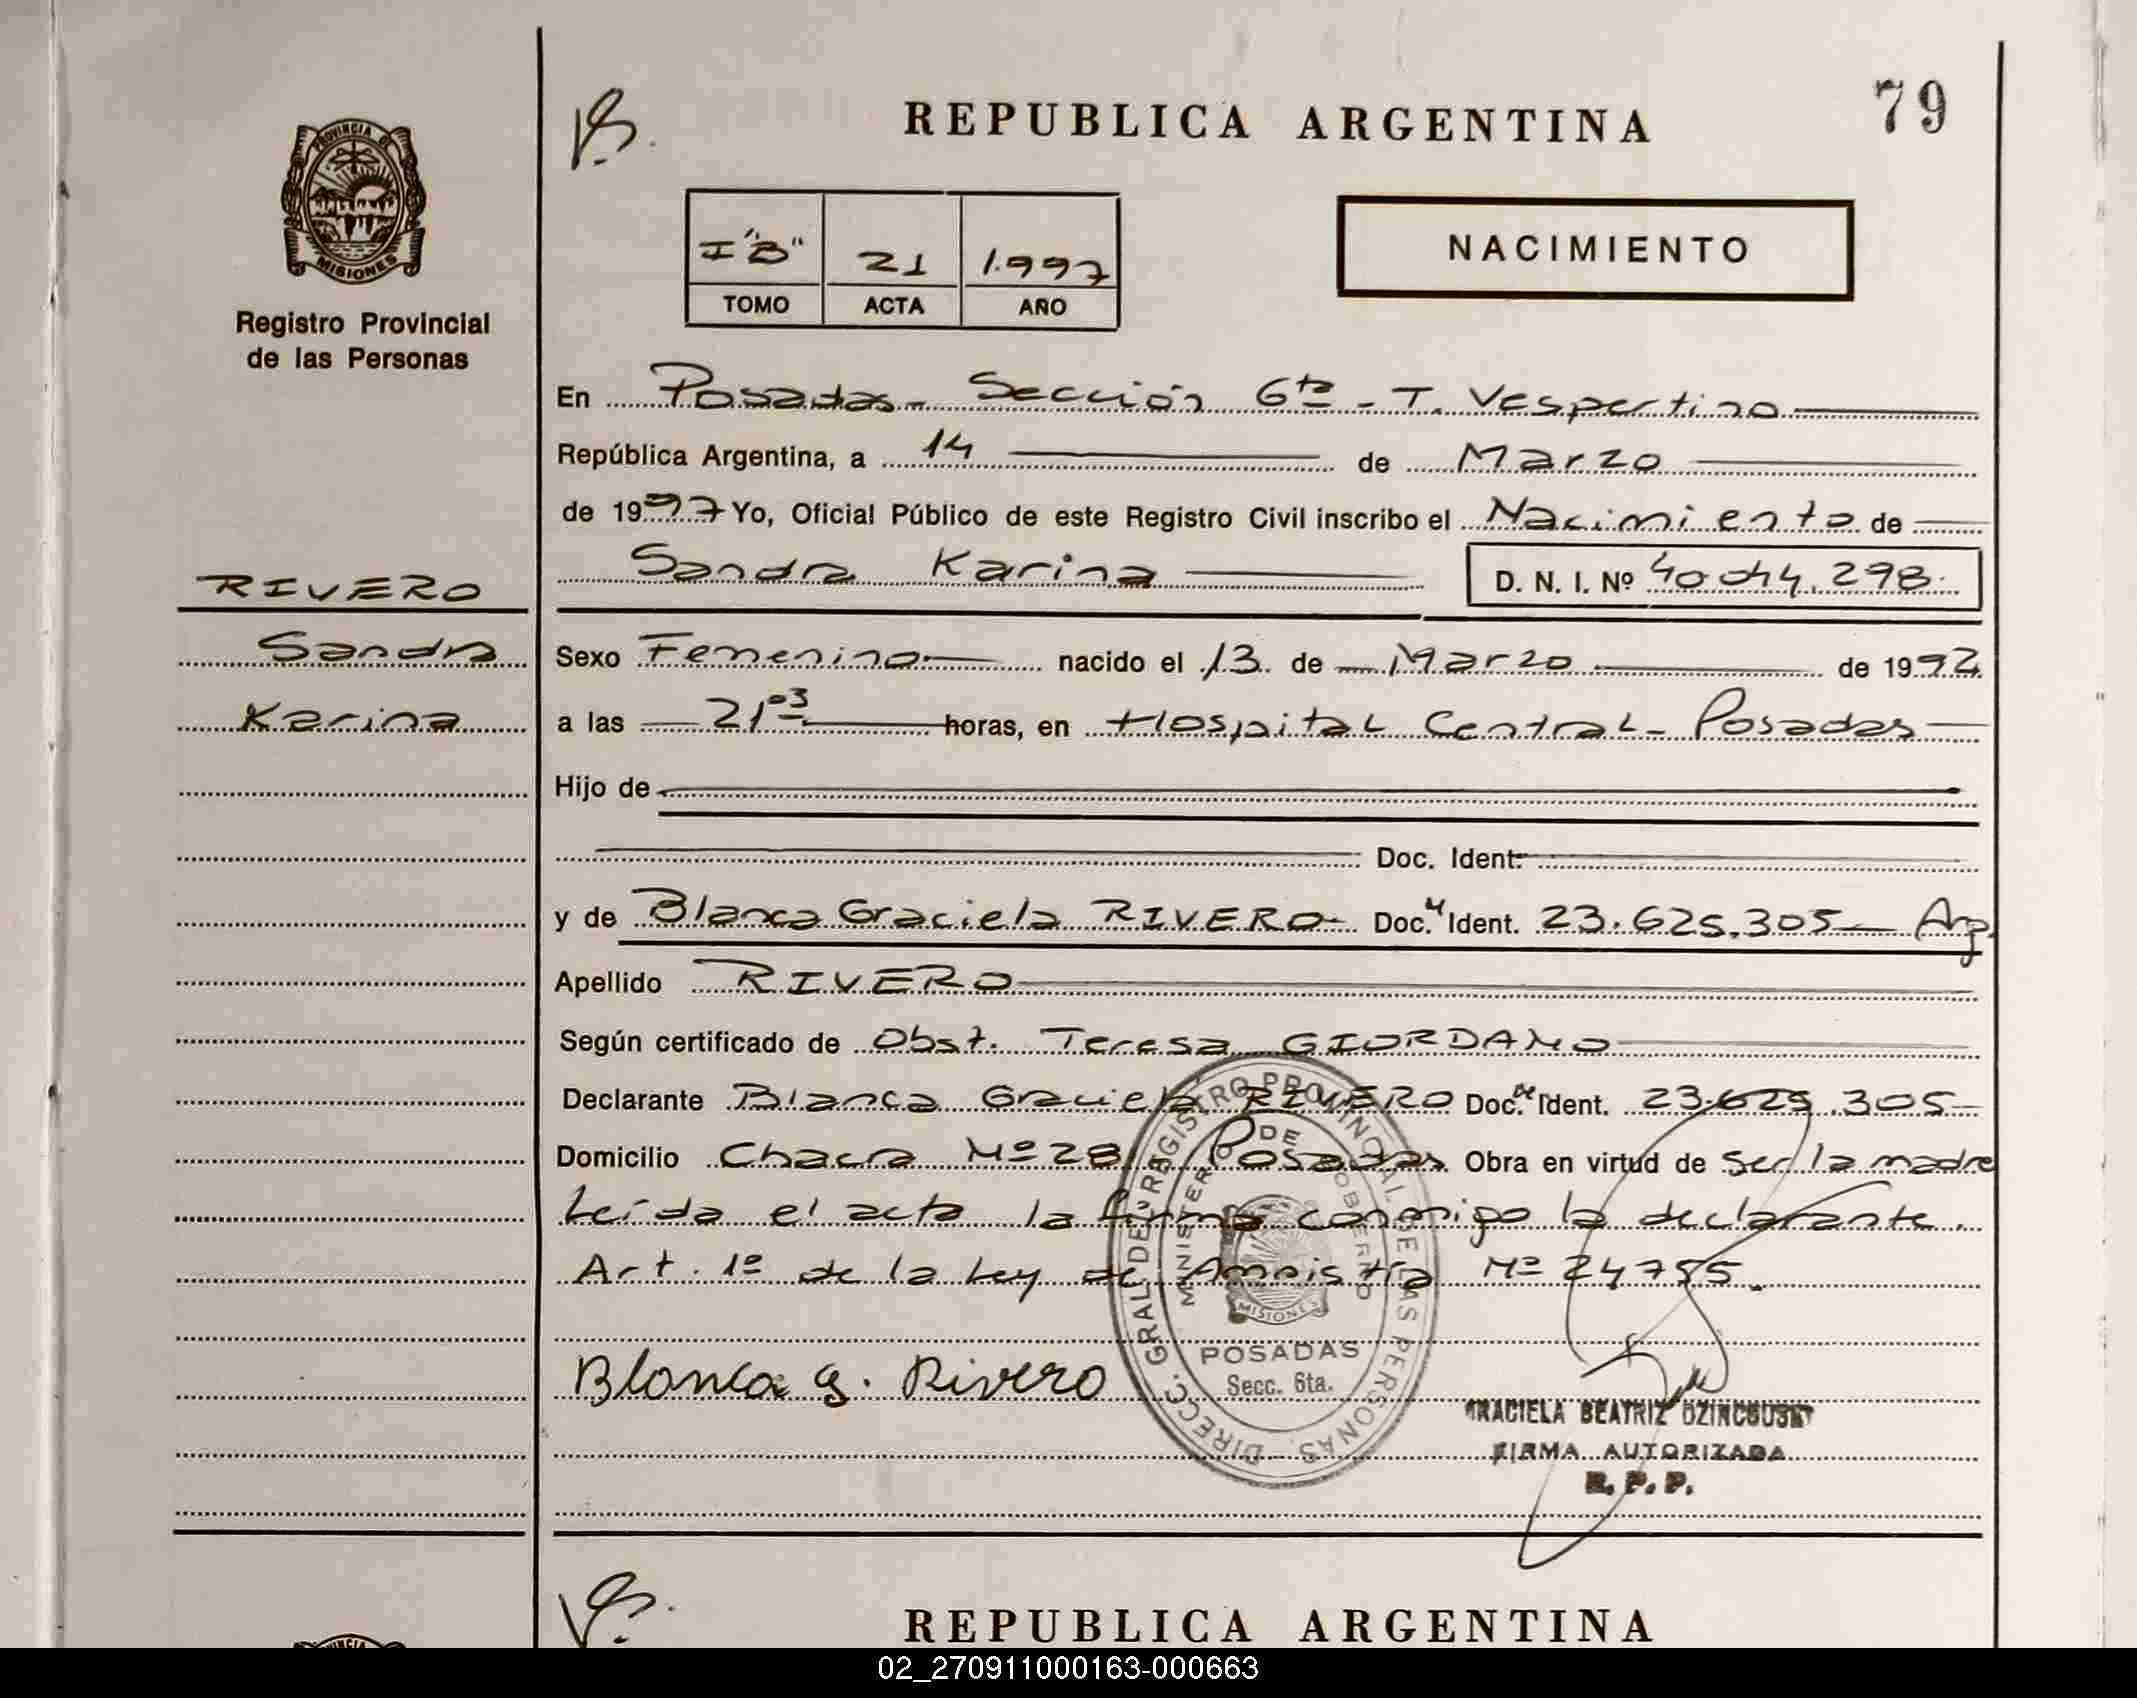 PROVINCIA DE
MISIONES
Registro Provincial
de las Personas
REPUBLICA ARGENTINA
79
I "B" 21 1.997
TOMO ACTA AÑO
NACIMIENTO
En Posadas - Sección 6ta - T. Vespertino
República Argentina, a 14 de Marzo
de 1997 Yo, Oficial Público de este Registro Civil inscribo el Nacimiento de
Sandra Karina D. N. I. Nº 40.044.298.
RIVERO
Sandra
Karina
Sexo Femenino nacido el 13 de Marzo de 1992
a las 21 03 horas, en Hospital Central - Posadas
Hijo de
Doc. Ident.
y de Blanca Graciela RIVERO Doc. Ident. 23.625.305 Arg.
Apellido RIVERO
Según certificado de Obst. Teresa GIORDANO
Declarante Blanca Graciela RIVERO Doc. Ident. 23.625.305
Domicilio Chacra Nº 28 Posadas Obra en virtud de ser la madre
Leída el acta la firma conmigo la declarante.
Art. 1º de la Ley de Amnistía Nº 24755.
Blanca G. Rivero
DIRECC. GRAL. DEL REGISTRO PROVINCIAL DE LAS PERSONAS
MINISTERIO DE GOBIERNO
MISIONES
POSADAS
Secc. 6ta.
GRACIELA BEATRIZ
FIRMA AUTORIZADA
R. P. P.
REPUBLICA ARGENTINA
02_270911000163-000663